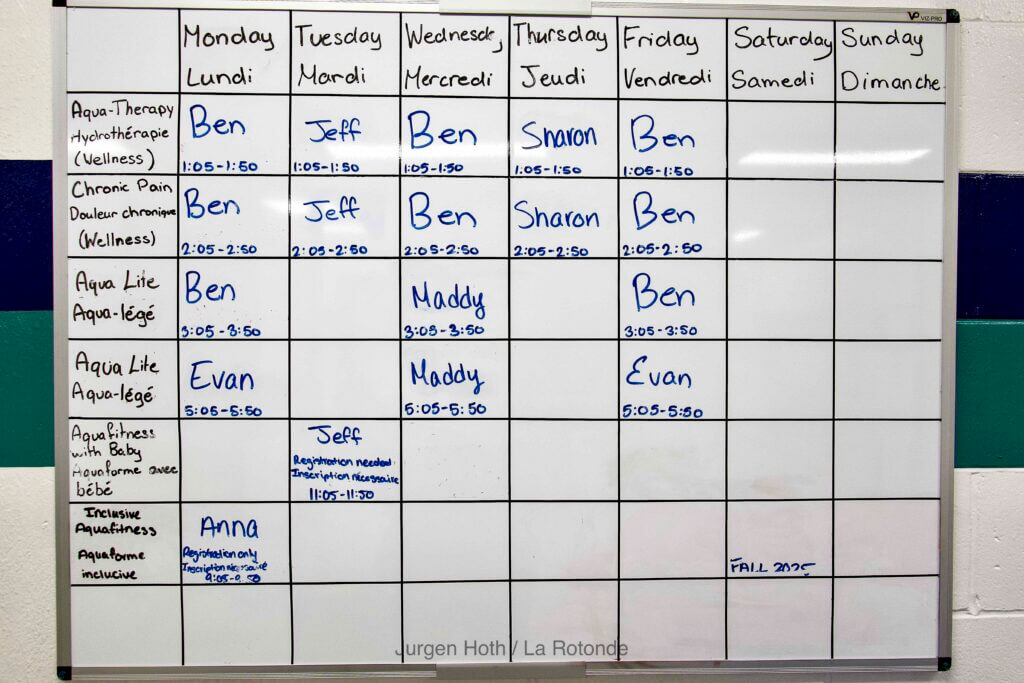 VIZ-PRO
Monday Tuesday Wednesday Thursday Friday Saturday Sunday
Lundi Mardi Mercredi Jeudi Vendredi Samedi Dimanche
Aqua-Therapy
Hydrothérapie
(Wellness)
Ben Jeff Ben Sharon Ben
1:05-1:50 1:05-1:50 1:05-1:50 1:05-1:50 1:05-1:50
Chronic Pain
Douleur chronique
(Wellness)
Ben Jeff Ben Sharon Ben
2:05-2:50 2:05-2:50 2:05-2:50 2:05-2:50 2:05-2:50
Aqua Lite
Aqua-légé
Ben Maddy Ben
3:05-3:50 3:05-3:50 3:05-3:50
Aqua Lite
Aqua-légé
Evan Maddy Evan
5:05-5:50 5:05-5:50 5:05-5:50
Aquafitness
with Baby
Aquaforme avec
bébé
Jeff
Registration needed
Inscription nécessaire
11:05-11:50
Inclusive
Aquafitness
Aquaforme
inclucive
Anna
Registration only
Inscription nécessaire
FALL 2025
Jurgen Hoth / La Rotonde